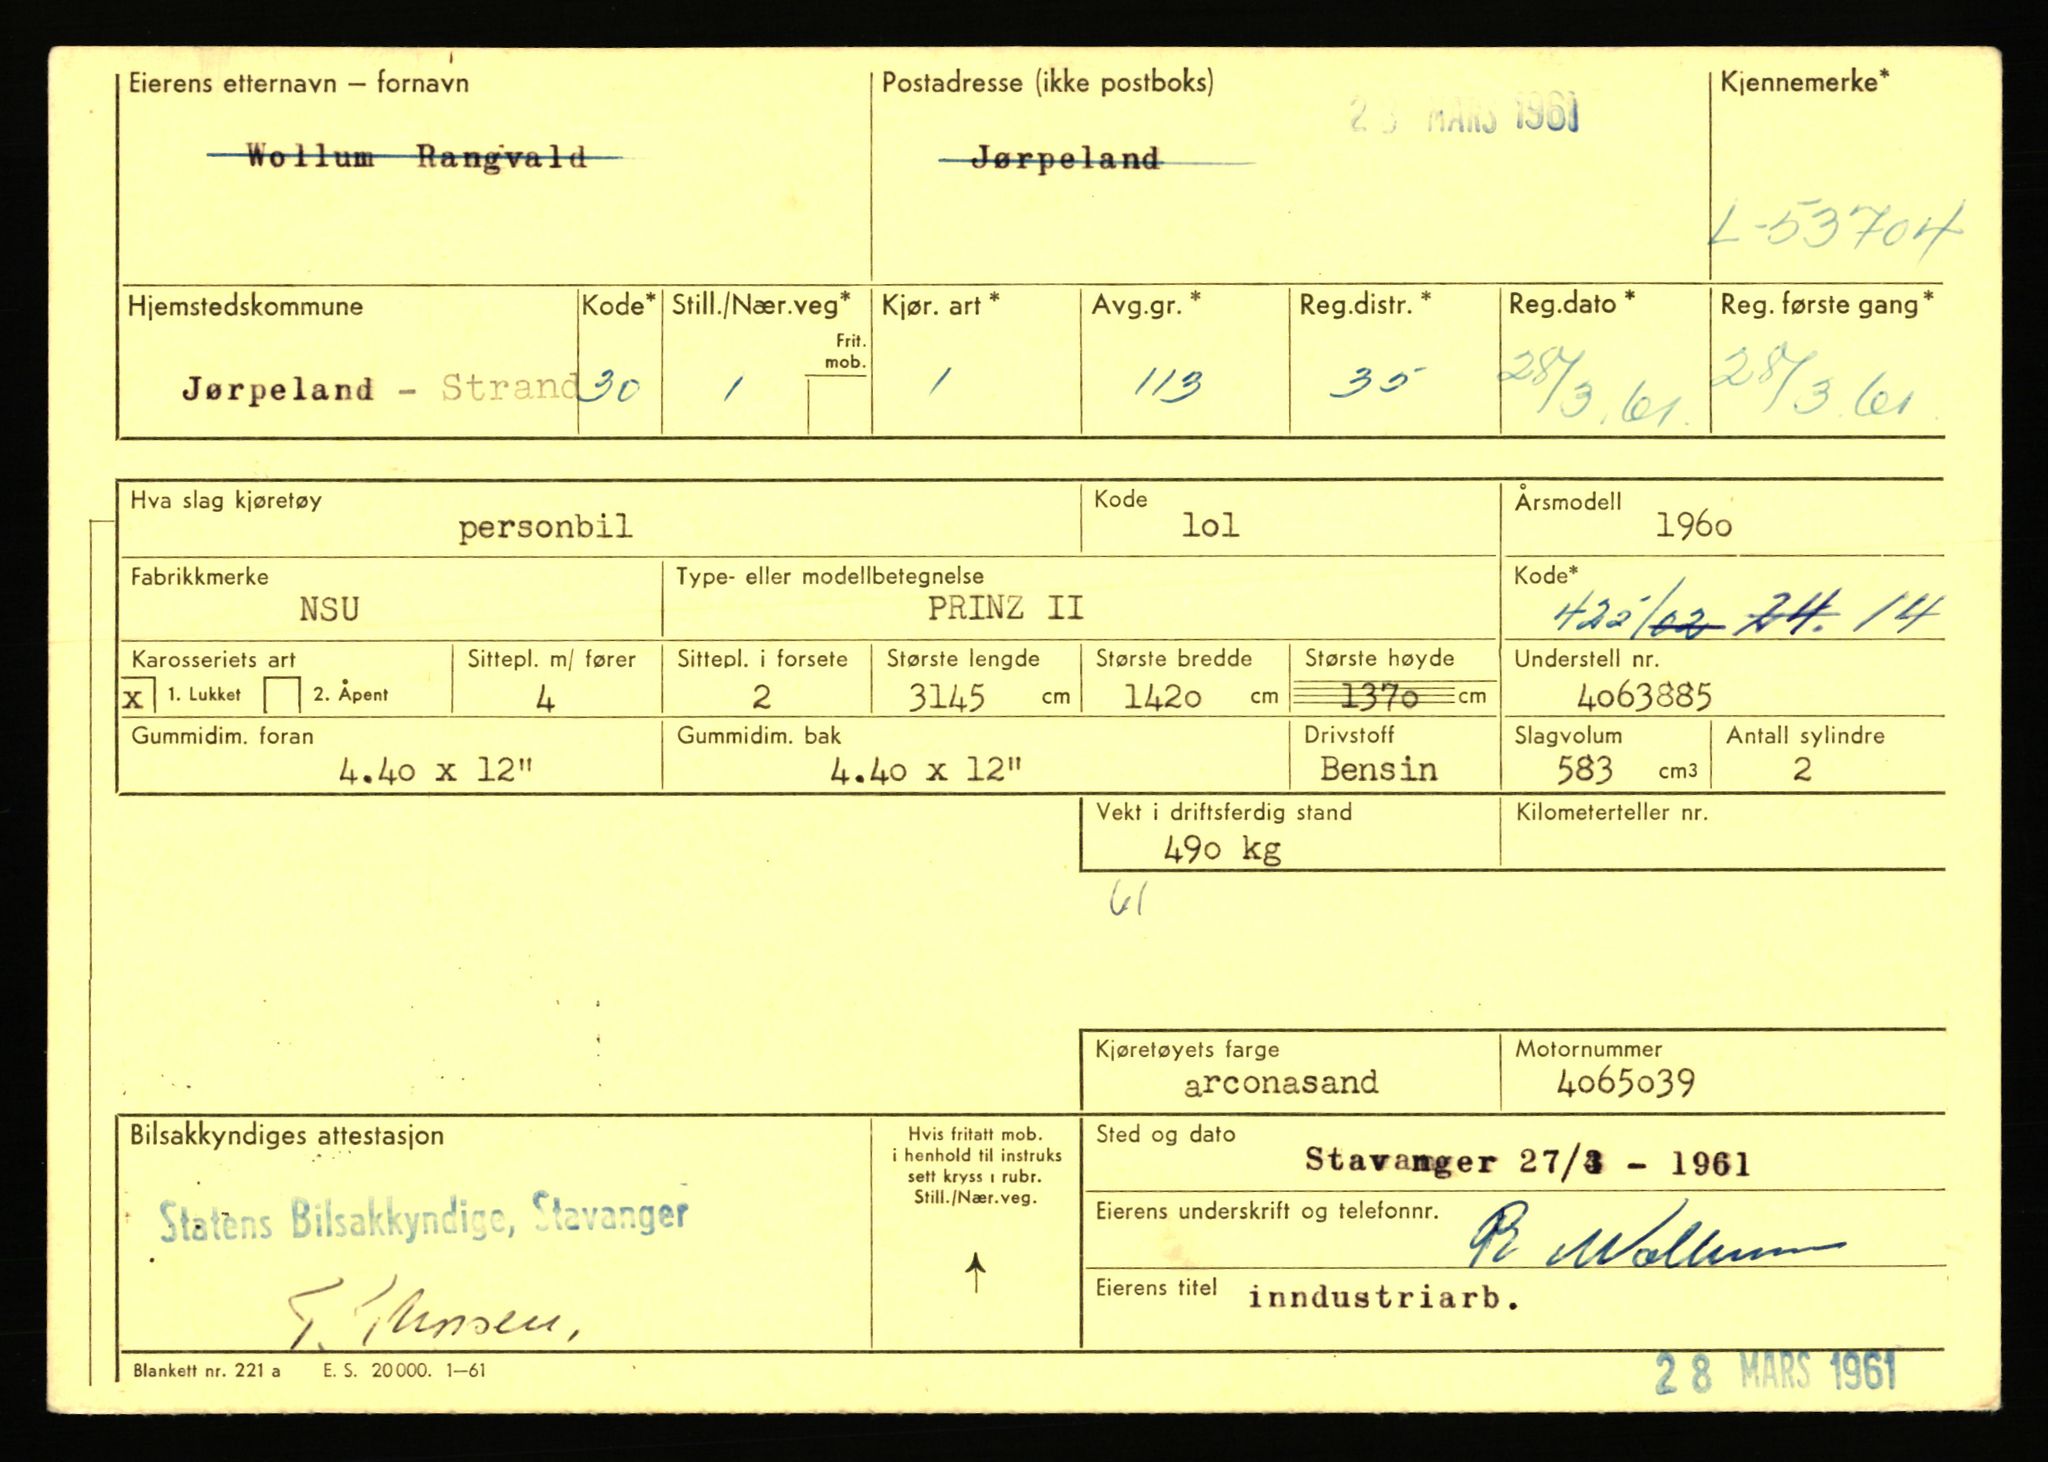 Eierens etternavn – fornavn
Postadresse (ikke postboks)
Kjennemerke*
28 MARS 1961
Wollum Rangvald
Jørpeland
L-53704
Hjemstedskommune
Kode*
Still./Nær.veg*
Kjør. art*
Avg.gr.*
Reg.distr.*
Reg.dato*
Reg. første gang*
Frit. mob.
Jørpeland - Strand
30
1
1
113
35
28/3.61.
28/3.61.
Hva slag kjøretøy
Kode
Årsmodell
personbil
lol
196o
Fabrikkmerke
Type- eller modellbetegnelse
Kode*
NSU
PRINZ II
425/02 24. 14
Karosseriets art
Sittepl. m/ fører
Sittepl. i forsete
Største lengde
Største bredde
Største høyde
Understell nr.
x 1. Lukket 2. Åpent
4
2
3145 cm
142o cm
137o cm
4o63885
Gummidim. foran
Gummidim. bak
Drivstoff
Slagvolum
Antall sylindre
4.4o x 12"
4.4o x 12"
Bensin
583 cm3
2
Vekt i driftsferdig stand
Kilometerteller nr.
49o kg
61
Kjøretøyets farge
Motornummer
arconasand
4o65o39
Bilsakkyndiges attestasjon
Hvis fritatt mob.
i henhold til instruks
sett kryss i rubr.
Still./Nær.veg.
Sted og dato
Stavanger 27/3 - 1961
Statens Bilsakkyndige, Stavanger
Eierens underskrift og telefonnr.
R Wollum
Eierens titel
inndustriarb.
Blankett nr. 221 a E. S. 20000. 1–61
28 MARS 1961